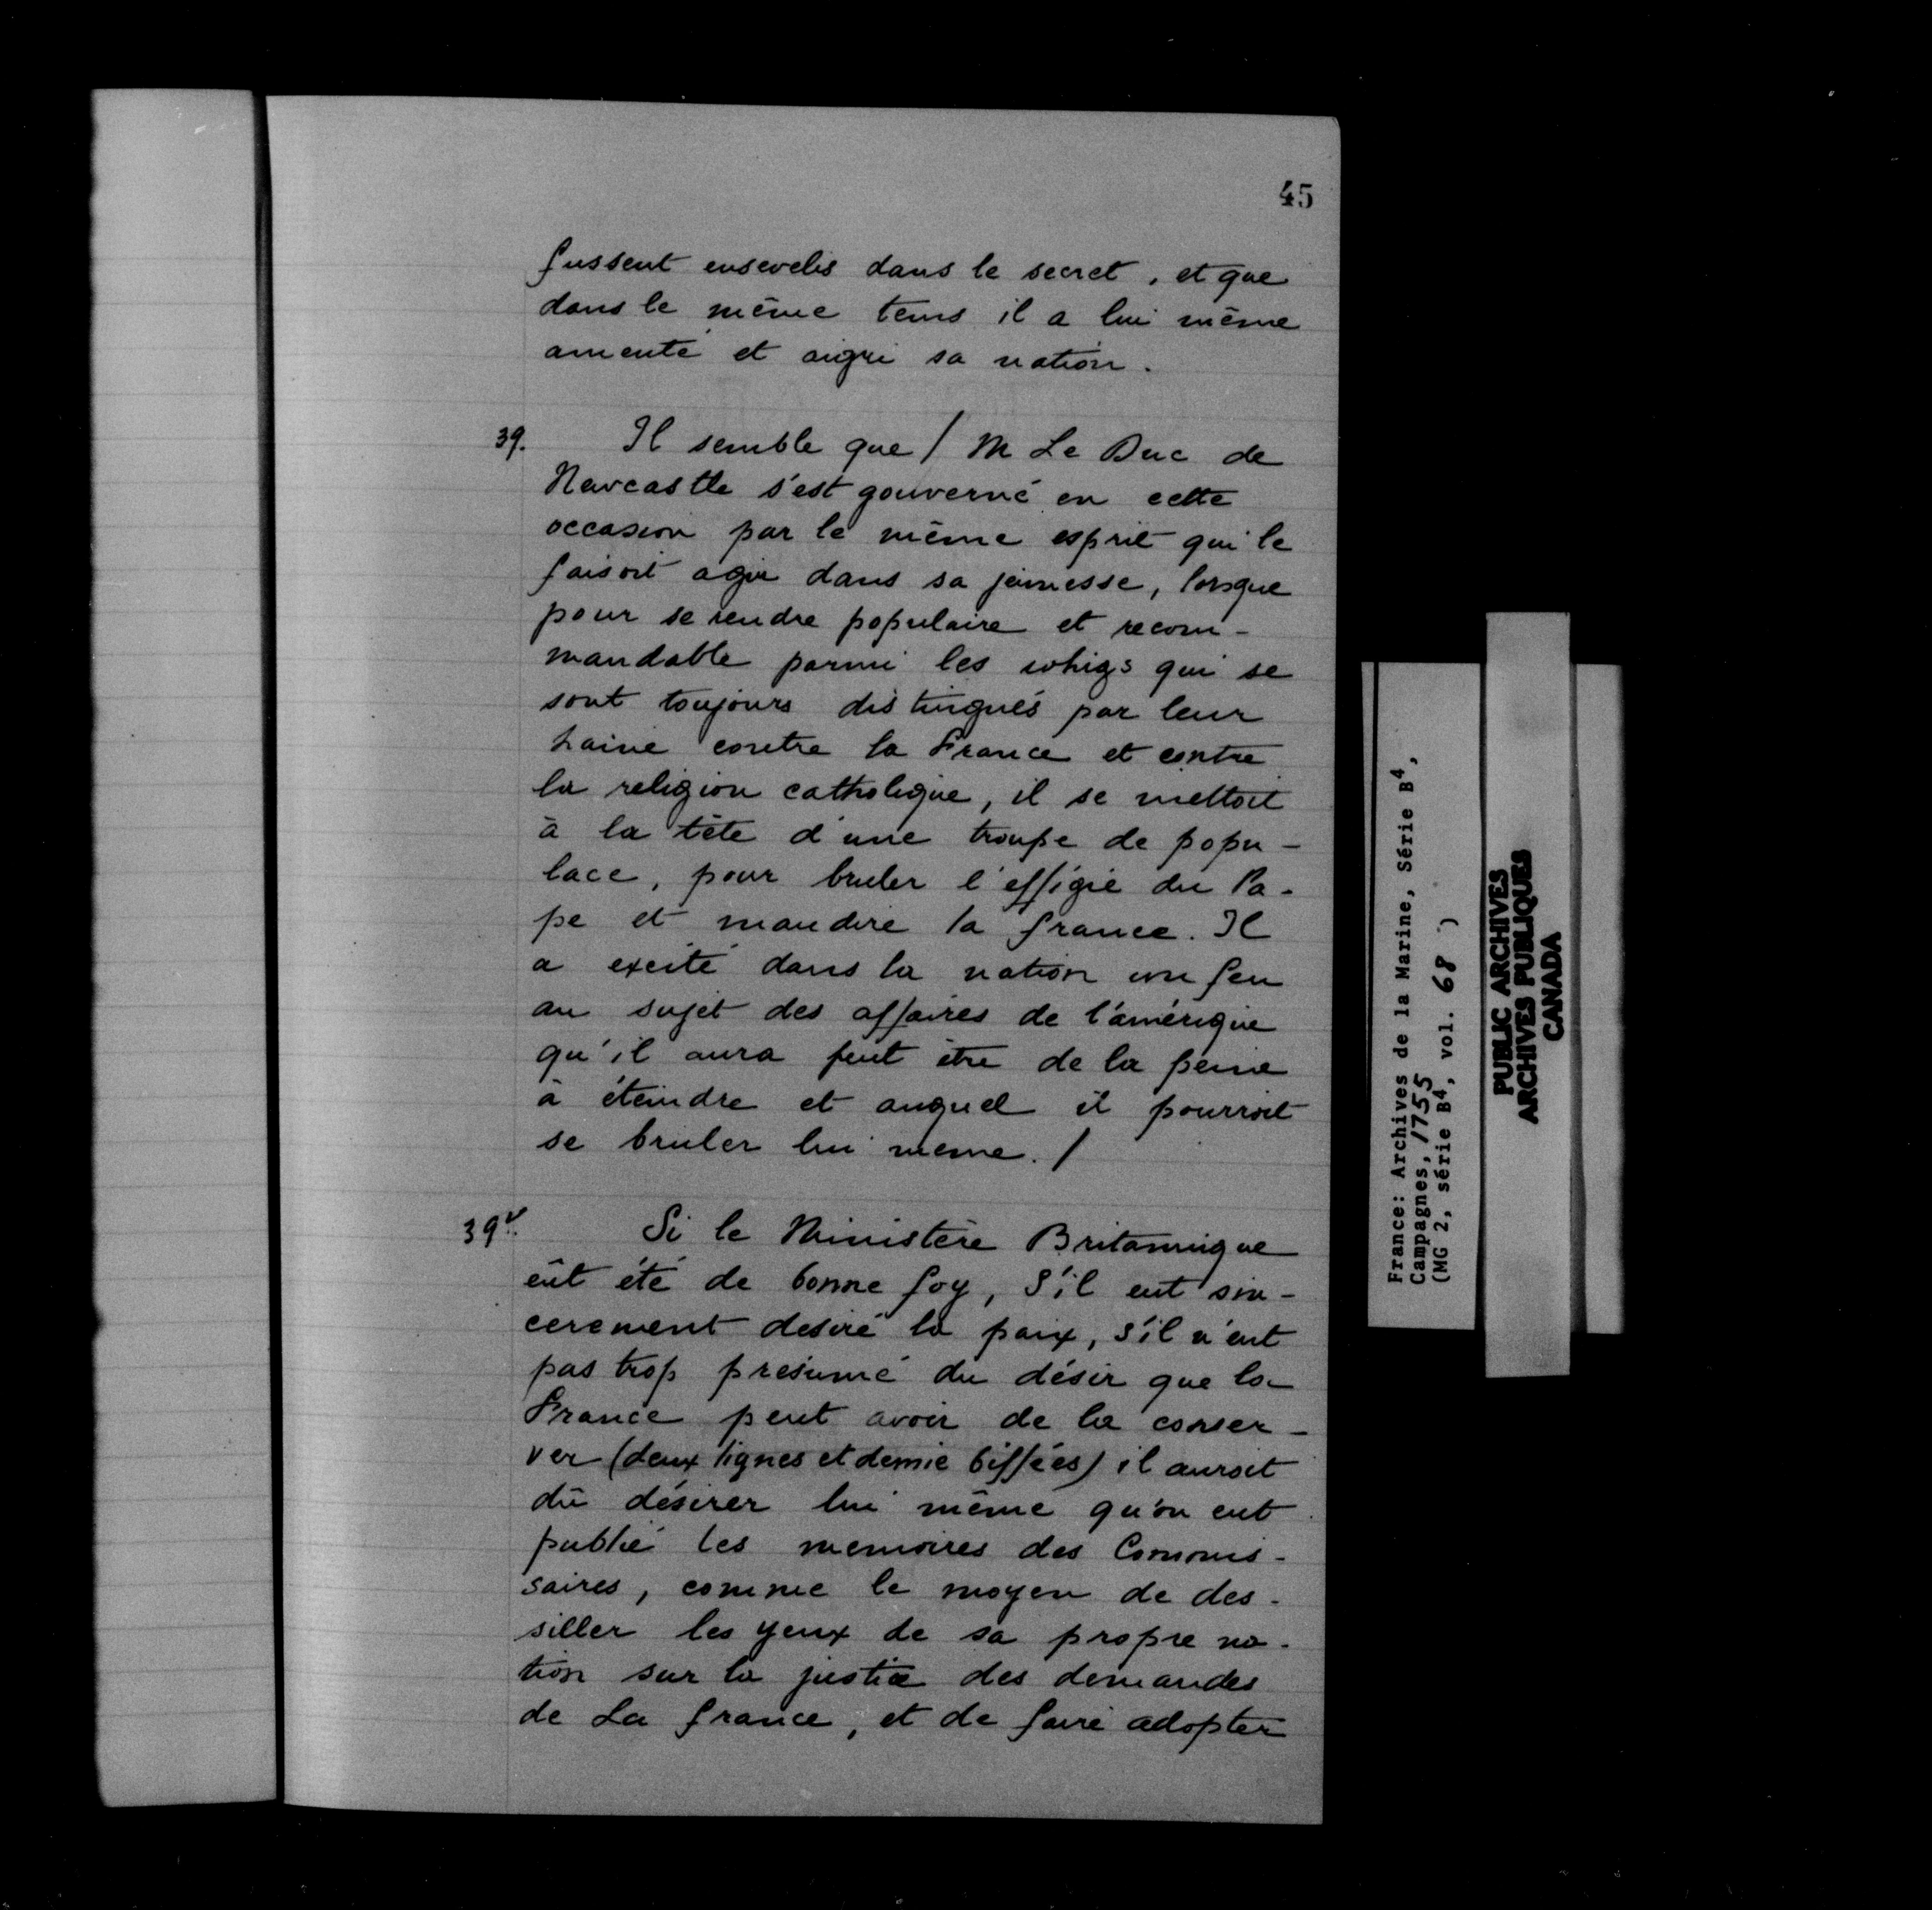 45
fussent ensevelis dans le secret, et que
dans le même tems il a lui même
ameuté et aigri sa nation.
39. Il semble que / M Le Duc de
Newcastle s'est gouverné en cette
occasion par le même esprit qui le
faisoit agir dans sa jeunesse, lorsque
pour se rendre populaire et recom-
mandable parmi les whigs qui se
sont toujours distingués par leur
haine contre la France et contre
la religion catholique, il se mettoit
à la tête d'une troupe de popu-
lace, pour bruler l'effigie du Pa-
pe et maudire la france. Il
a excité dans la nation un feu
au sujet des affaires de l'amérique
qu'il aura peut être de la peine
à éteindre et auquel il pourroit
se bruler lui meme. /
39v. Si le Ministère Britannique
eût été de bonne foy, S'il eut sin-
cerement desiré la paix, s'il n'eut
pas trop presumé du désir que la
France peut avoir de la conser-
ver (deux lignes et demie biffées) il auroit
dû désirer lui même qu'on eut
publié les memoires des Commis-
saires, comme le moyen de des-
siller les yeux de sa propre na-
tion sur la justice des demandes
de La france, et de faire adopter
France: Archives de la Marine, Série B4,
Campagnes, 1755
(MG 2, série B4, vol. 68 )
PUBLIC ARCHIVES
ARCHIVES PUBLIQUES
CANADA